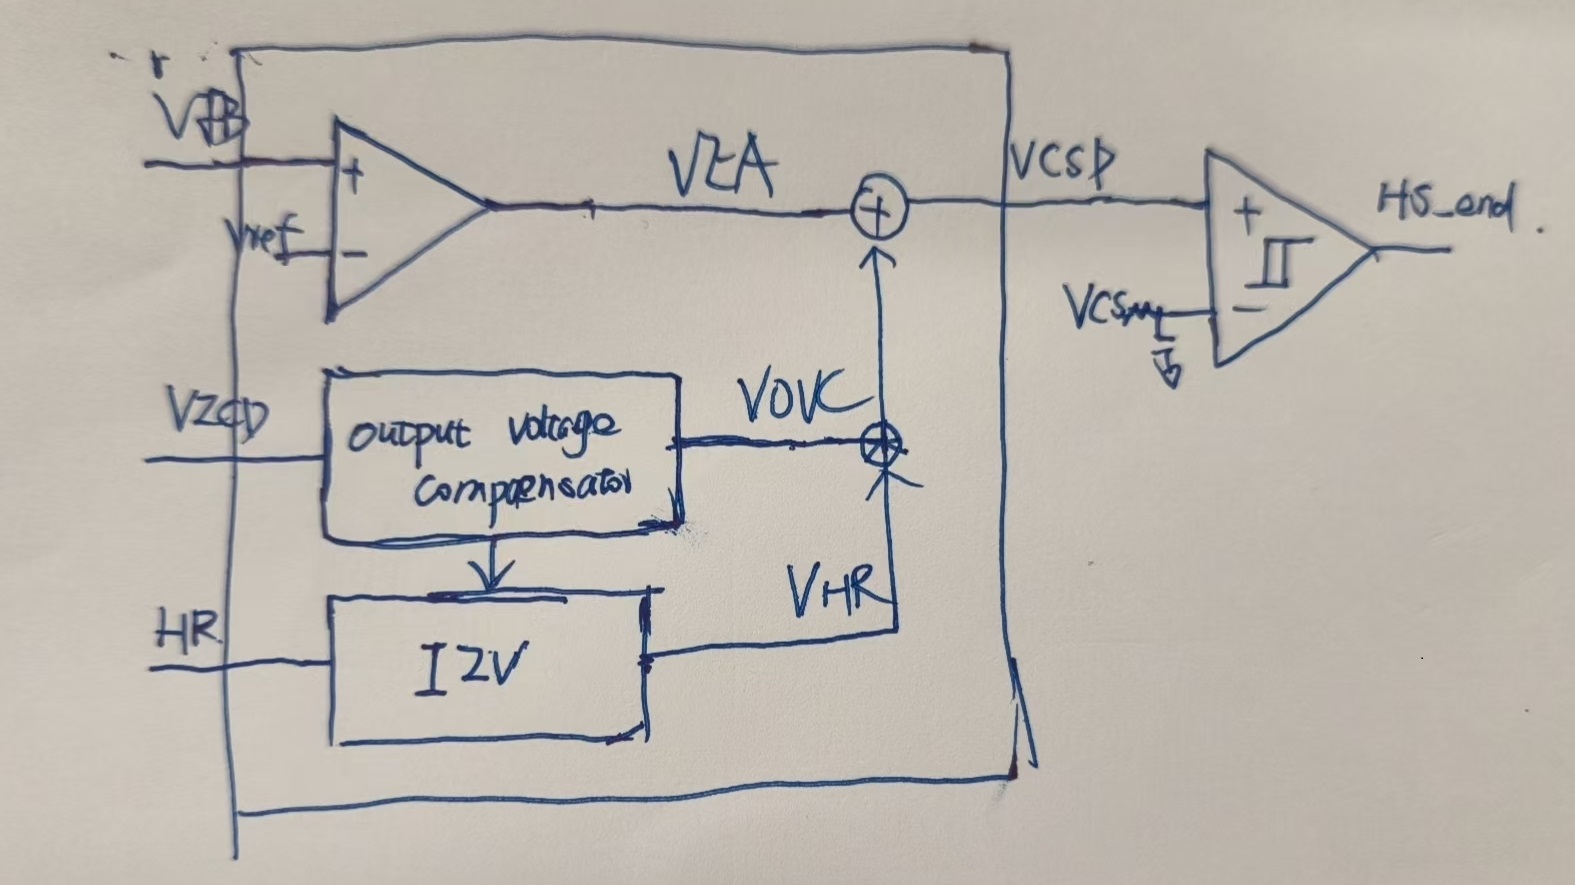 VFB
+
VEA
+
VCSP
+
HS_end.
Vref
-
VCSM
-
VZCD
output voltage
compensator
VOVC
HR
I2V
VHR